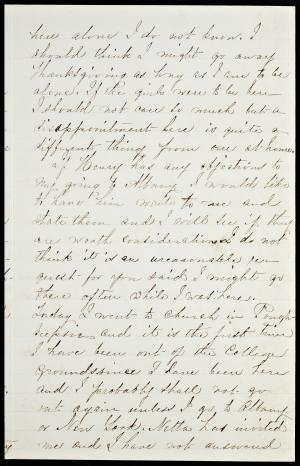 here alone I do not know. I
should think I might go away
Thanksgiving as long as I am to be
alone. If the girls were to be here
I should not care so much but a
disappointment here is quite a
different thing from one at home.
If Henry has any objections to
my going to Albany I would like
to have him write to me and
state them and I will see if they
are worth consideration. I do not
think it is an unreasonable re-
quest for you said I might go
there often while I was here.
Today I went to church in Pough-
keepsie and it is the first time
I have been out of the College
grounds since I have been here
and I probably shall not go
out again unless I go to Albany
or New York. Netta has invited
me and I have not answered